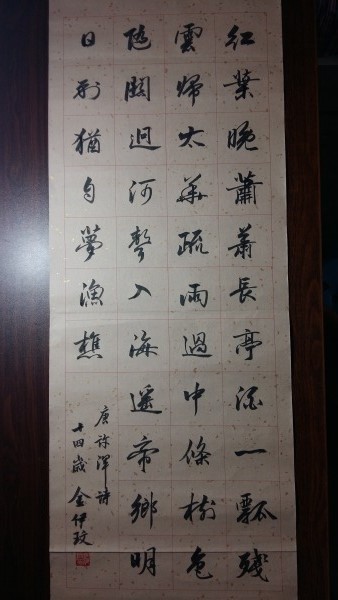 紅葉晚蕭蕭長亭酒一瓢殘
雲歸太華疏雨過中條樹色
隨關迥河聲入海遙帝鄉明
日到猶自夢漁樵
唐許渾詩
十四歲 金伊玟